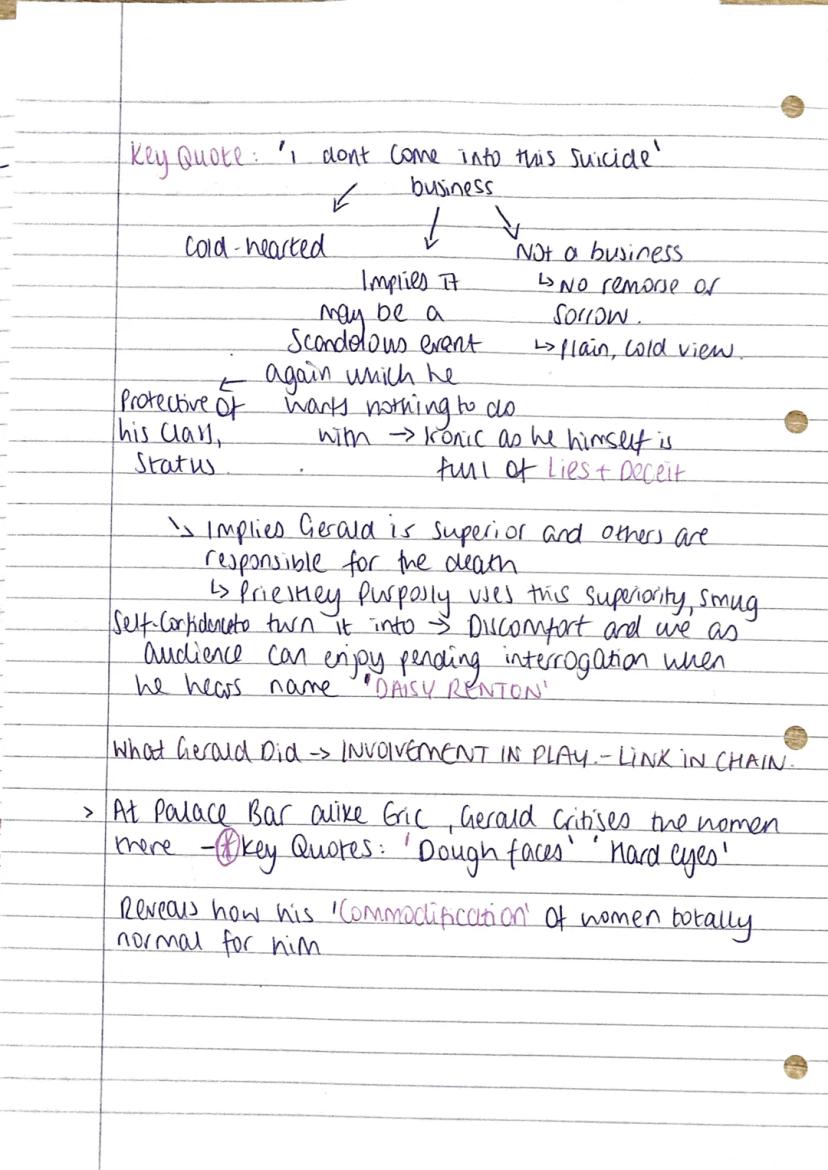 Key Quote: 'i dont come into this suicide'
business
Cold-hearted
Implies it
may be a
Scandolous event
again which he
wants nothing to do
with → Ironic as he himself is
full of Lies + Deceit
Not a business
↳ No remorse or
sorrow.
↳ Plain, cold view.
Protective of
his class,
status.
↘ Implies Gerald is superior and others are
responsible for the death
↳ Priestley purposly uses this superiority, smug
self-confidence to turn it into → Discomfort and we as
audience can enjoy pending interrogation when
he hears name 'DAISY RENTON'
What Gerald Did → INVOLVEMENT IN PLAY. - LINK IN CHAIN.
> At Palace Bar alike Eric, Gerald critises the women
there - * Key Quotes: 'Dough faces' 'Hard eyes'
Reveals how his 'Commodification' of women totally
normal for him